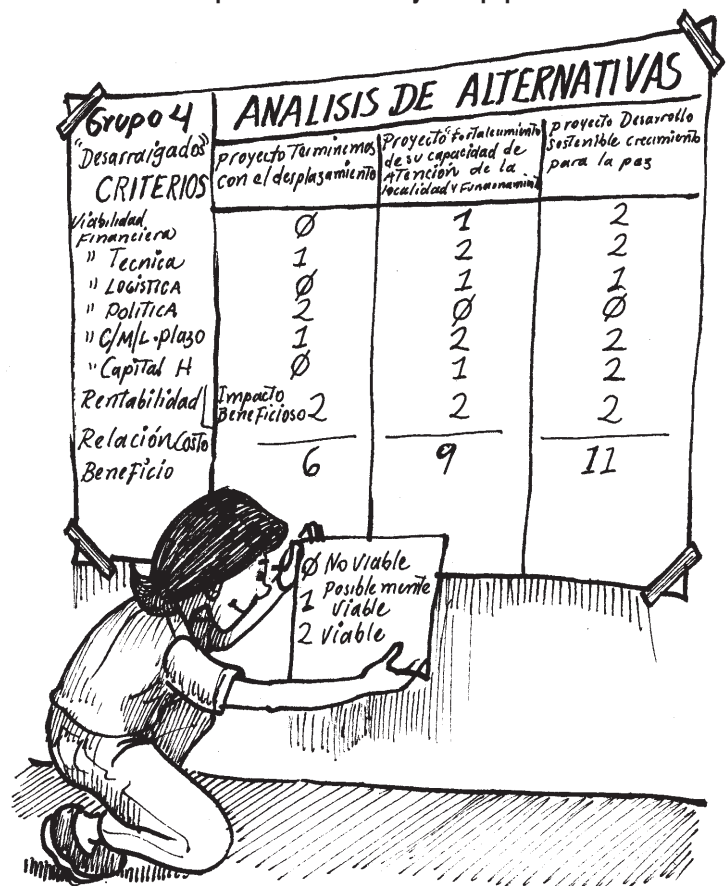 Grupo 4
"Desarraigados"
CRITERIOS
ANALISIS DE ALTERNATIVAS
proyecto Terminemos
con el desplazamiento
Proyecto "Fortalecimiento
de su capacidad de
ATención de la
localidad y Funcionamin
proyecto Desarrollo
Sostenible crecimiento
para la paz
Viabilidad
Financiera 0 1 2
" Tecnica 1 2 2
" LOGISTICA 0 1 1
" POLITICA 2 0 0
" C/M/L.plazo 1 2 2
" Capital H 0 1 2
Rentabilidad Impacto
Beneficioso 2 2 2
Relación Costo
Beneficio 6 9 11
0 No Viable
1 Posiblemente
Viable
2 Viable